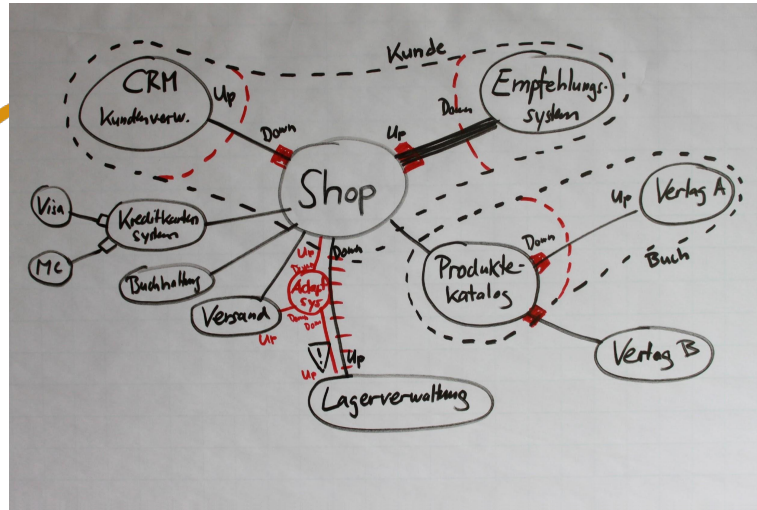 Kunde
CRM
Kundenverw.
Up
Down
Empfehlungs-
system
Down
Up
Shop
Visa
Kreditkarten
system
MC
Buchhaltung
Versand
Up
Down
Down
Adapt
sys
Down
Down
Up
Up
Up
Lagerverwaltung
Produkte-
katalog
Down
Up
Verlag A
Buch
Verlag B
!